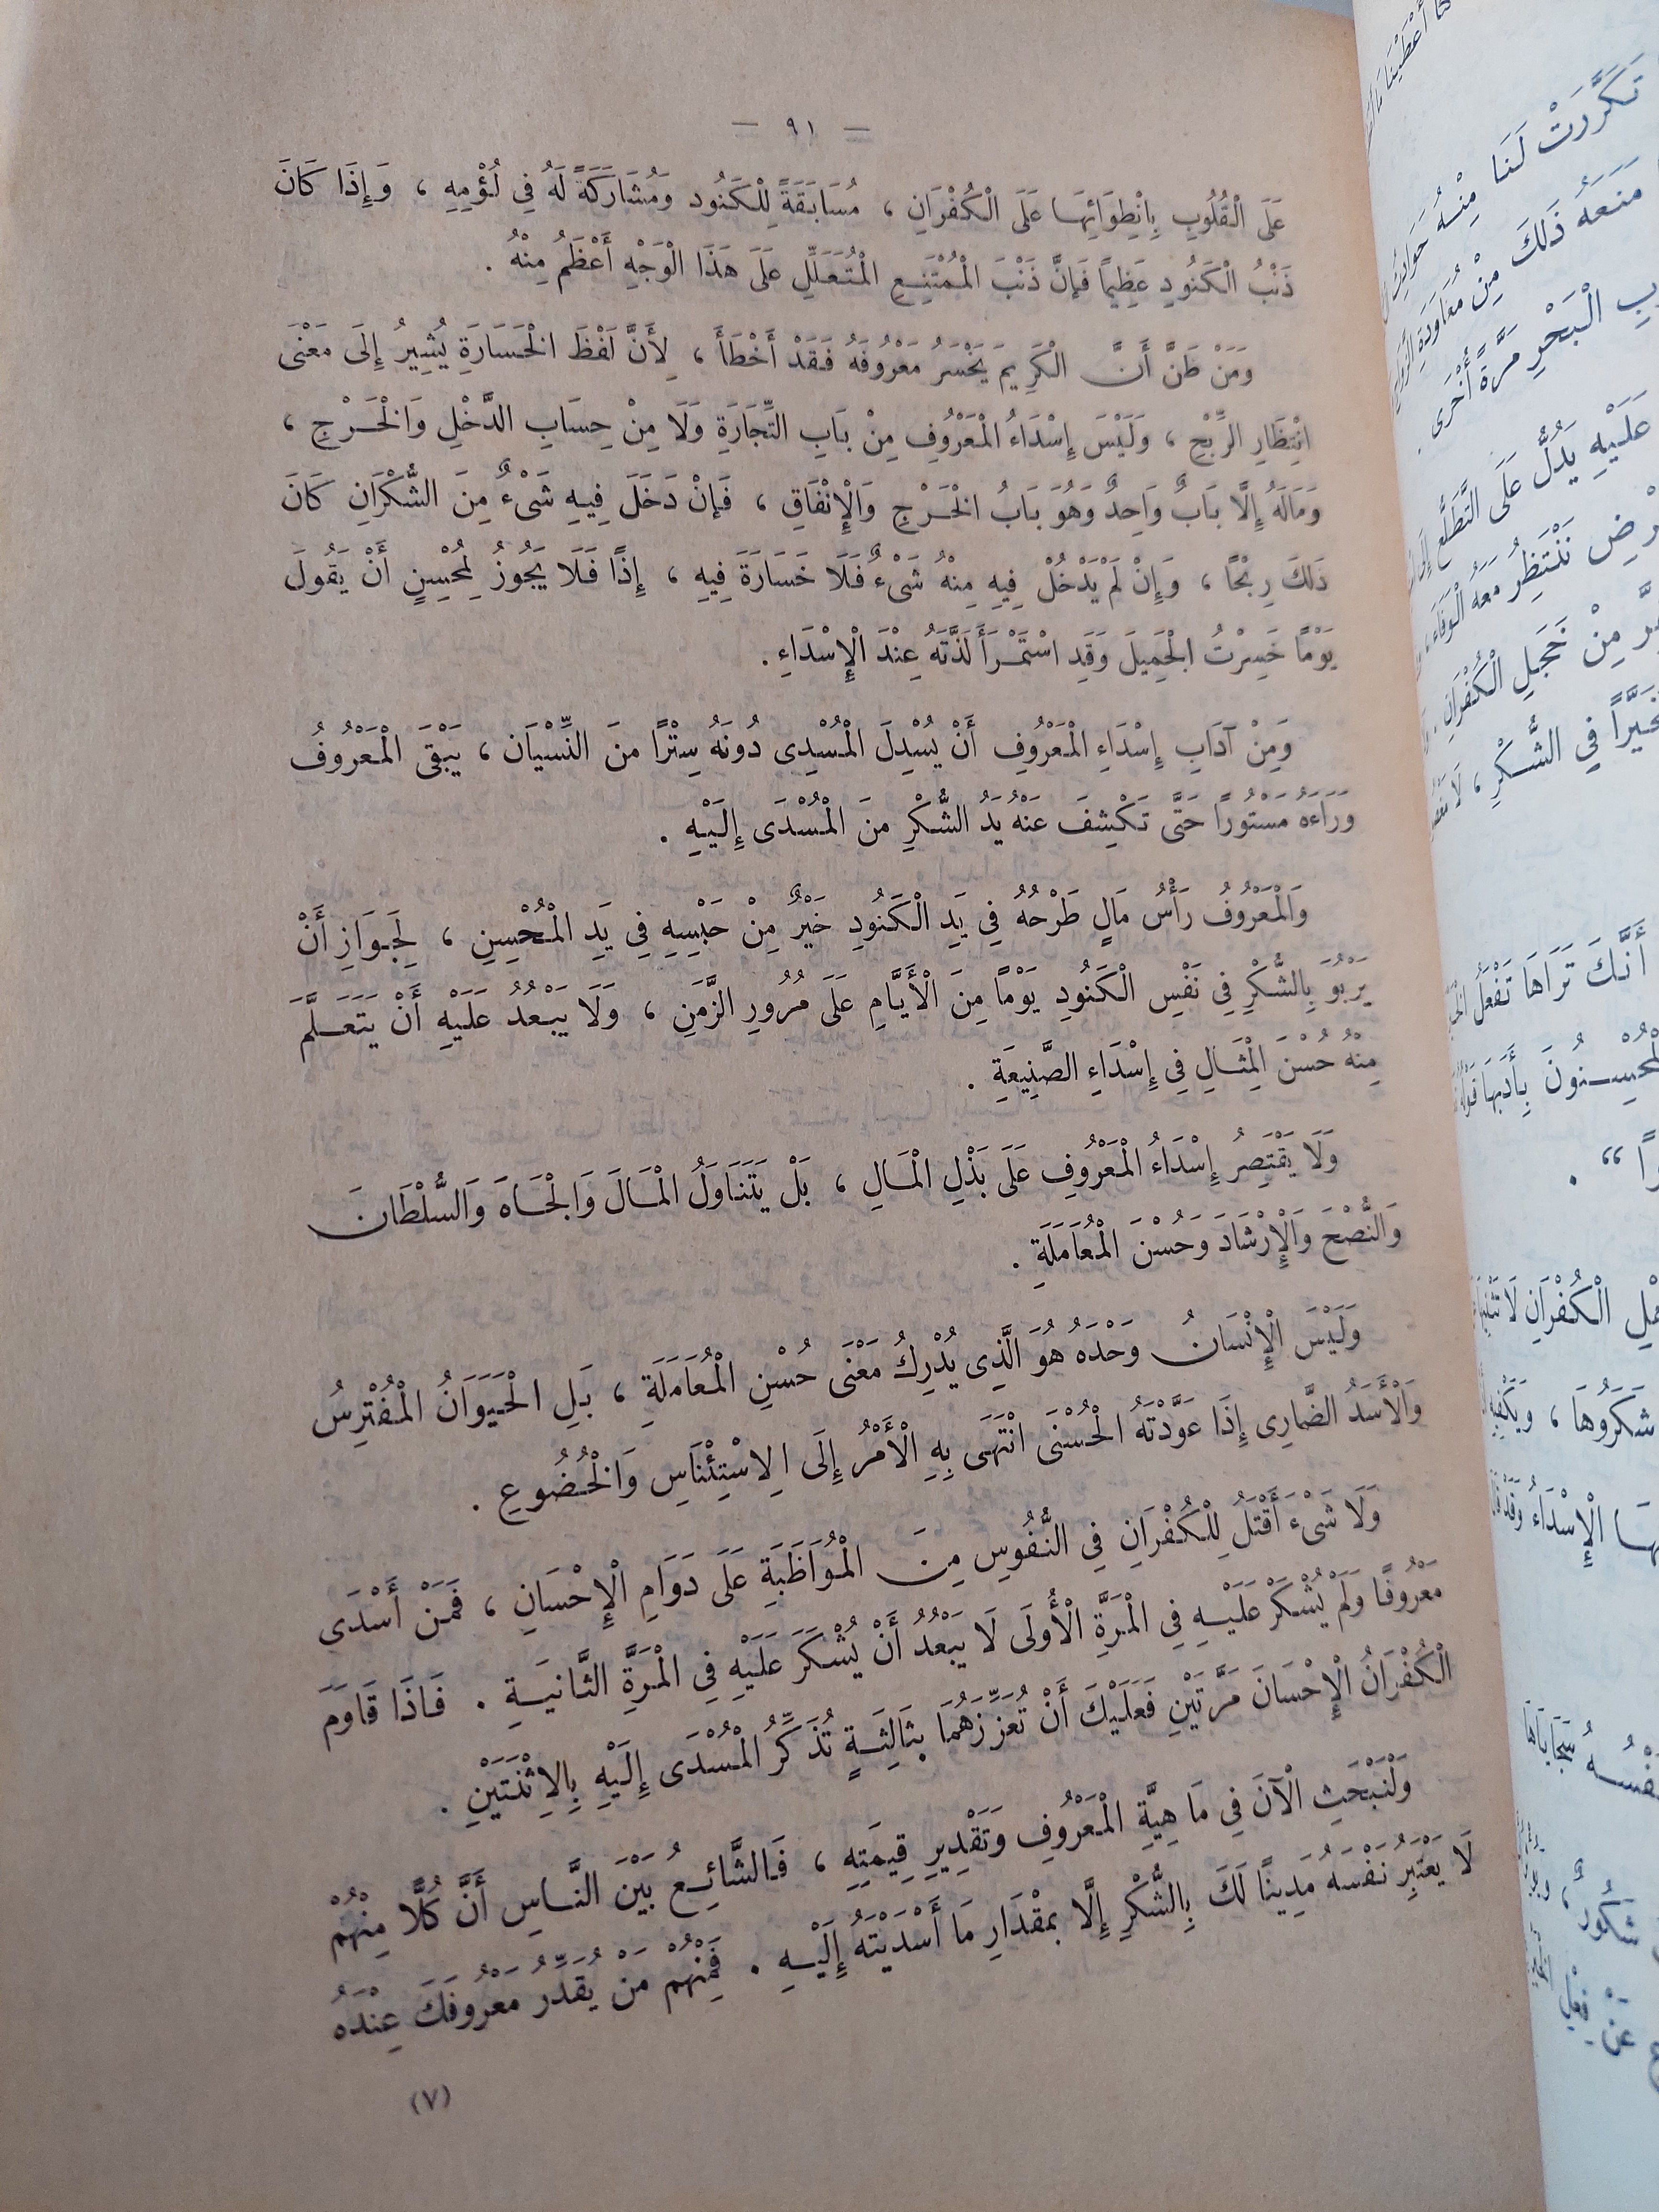 — ٩١ —
عَلَى الْقُلُوبِ بِانْطِوَائِهَا عَلَى الْكُفْرَانِ ، مُسَابَقَةً لِلْكَنُود وَمُشَارَكَةً لَهُ فِى لُؤْمِهِ ، وَإِذَا كَانَ
ذَنْبُ الْكَنُودِ عَظِيمًا فَإِنَّ ذَنْبَ الْمُمْتَنِعِ الْمُتَعَلِّلِ عَلَى هَذَا الْوَجْهِ أَعْظَمُ مِنْهُ .
وَمَنْ ظَنَّ أَنَّ الْكَرِيمَ يَخْسَرُ مَعْرُوفَهُ فَقَدْ أَخْطَأَ ، لِأَنَّ لَفْظَ الْخَسَارَةِ يُشِيرُ إِلَى مَعْنَى
انْتِظَارِ الرِّبْحِ ، وَلَيْسَ إِسْدَاءُ الْمَعْرُوفِ مِنْ بَابِ التِّجَارَةِ وَلَا مِنْ حِسَابِ الدَّخْلِ وَالْخَرْجِ ،
وَمَالَهُ إِلَّا بَابٌ وَاحِدٌ وَهُوَ بَابُ الْخَرْجِ وَالْإِنْفَاقِ ، فَإِنْ دَخَلَ فِيهِ شَىْءٌ مِنَ الشُّكْرَانِ كَانَ
ذَلكَ رِبْحًا ، وَإِنْ لَمْ يَدْخُلْ فِيهِ مِنْهُ شَىْءٌ فَلَا خَسَارَةَ فِيهِ ، إِذًا فَلَا يَجُوزُ لِمُحْسِنٍ أَنْ يَقُولَ
يَوْمًا خَسِرْتُ الْجَمِيلَ وَقَدِ اسْتَمْرَأَ لَذَّتَهُ عِنْدَ الْإِسْدَاءِ .
وَمِنْ آدَابِ إِسْدَاءِ الْمَعْرُوفِ أَنْ يُسْدِلَ الْمُسْدِى دُونَهُ سِتْرًا منَ النِّسْيَان ، يَبْقَى الْمَعْرُوفُ
وَرَاءَهُ مَسْتُورًا حَتَّى تَكْشِفَ عَنْهُ يَدُ الشُّكْرِ منَ الْمُسْدَى إِلَيْهِ .
وَالْمَعْرُوفُ رَأْسُ مَالٍ طَرْحُهُ فِى يَدِ الْكَنُودِ خَيْرٌ مِنْ حَبْسِهِ فِى يَدِ الْمُحْسِنِ ، لِجَوَازِ أَنْ
يَرْبُوَ بِالشُّكْرِ فِى نَفْسِ الْكَنُودِ يَوْمًا مِنَ الْأَيَّامِ عَلَى مُرُورِ الزَّمَنِ ، وَلَا يَبْعُدُ عَلَيْهِ أَنْ يَتَعَلَّمَ
مِنْهُ حُسْنَ الْمِثَالِ فِى إِسْدَاءِ الصَّنِيعَةِ .
وَلَا يَقْتَصِرُ إِسْدَاءُ الْمَعْرُوفِ عَلَى بَذْلِ الْمَالِ ، بَلْ يَتَنَاوَلُ الْمَالَ وَالْجَاهَ وَالسُّلْطَانَ
وَالنُّصْحَ وَالْإِرْشَادَ وَحُسْنَ الْمُعَامَلَةِ .
وَلَيْسَ الْإِنْسَانُ وَحْدَهُ هُوَ الَّذِى يُدْرِكُ مَعْنَى حُسْنِ الْمُعَامَلَةِ ، بَلِ الْحَيَوَانُ الْمُفْتَرِسُ
وَالْأَسَدُ الضَّارِى إِذَا عَوَّدْتَهُ الْحُسْنَى انْتَهَى بِهِ الْأَمْرُ إِلَى الِاسْتِئْنَاسِ وَالْخُضُوعِ .
وَلَا شَىْءَ أَقْتَلُ لِلْكُفْرَانِ فِى النُّفُوسِ مِنَ الْمُوَاظَبَةِ عَلَى دَوَامِ الْإِحْسَانِ ، فَمَنْ أَسْدَى
مَعْرُوفًا وَلَمْ يُشْكَرْ عَلَيْهِ فِى الْمَرَّةِ الْأُولَى لَا يَبْعُدُ أَنْ يُشْكَرَ عَلَيْهِ فِى الْمَرَّةِ الثَّانِيَةِ . فَاذَا قَاوَمَ
الْكُفْرَانُ الْإِحْسَانَ مَرَّتَيْنِ فَعَلَيْكَ أَنْ تُعَزِّزَهُمَا بِثَالِثَةٍ تُذَكِّرُ الْمُسْدَى إِلَيْهِ بِالِاثْنَتَيْنِ .
وَلْنَبْحَثِ الْآنَ فِى مَاهِيَّةِ الْمَعْرُوفِ وَتَقْدِيرِ قِيمَتِهِ ، فَالشَّائِعُ بَيْنَ النَّاسِ أَنَّ كُلًّا مِنْهُمْ
لَا يَعْتَبِرُ نَفْسَهُ مَدِينًا لَكَ بِالشُّكْرِ إِلَّا بِمِقْدَارِ مَا أَسْدَيْتَهُ إِلَيْهِ . فَمِنْهُمْ مَنْ يُقَدِّرُ مَعْرُوفَكَ عِنْدَهُ
(٧)
تَكَرَّرَتْ لَنَا مِنْهُ
مَنَعَهُ ذَلكَ مِنْ مُعَاوَدَةِ
الْبَحْرِ مَرَّةً أُخْرَى .
عَلَيْهِ يَدُلُّ عَلَى التَّطَلُّعِ
نَنْتَظِرُ مَعَهُ الْوَفَاءَ
مِنْ خَجَلِ الْكُفْرَانِ
فِى الشُّكْرِ ،
أَنَّكَ تَرَاهَا تَفْعَلُ
بِأَدَبِهَا
“ .
الْكُفْرَانِ لَا
شَكَرُوهَا ،
الْإِسْدَاءُ
شَكُورٌ ،
عَنْ فِعْلِ